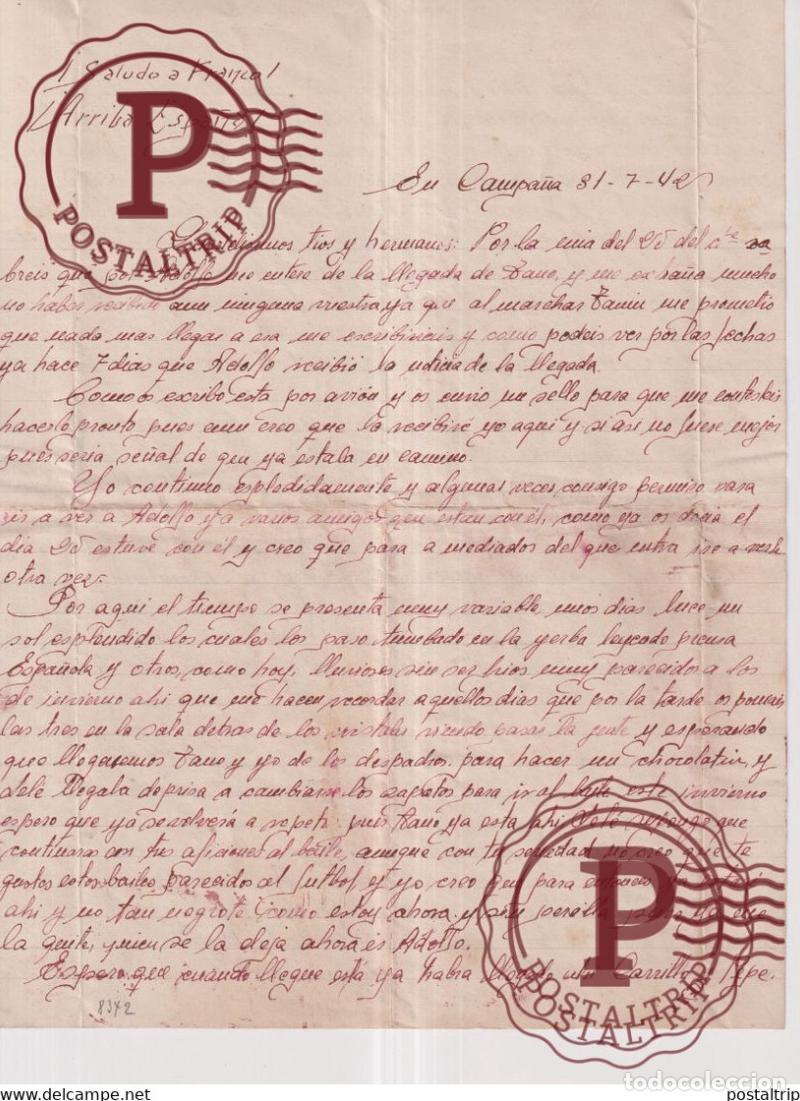 ¡Saludo a Franco!
¡Arriba España!
En Campaña 31-7-42
tios y hermanos: Por la mia del 25 del cte sa-
breis que por Adolfo me entere de la llegada de Tano, y me extraña mucho
no haber recibido aun ninguna vuestra ya que al marchar me prometio
que nada mas llegar a esa me escribiriais y como podeis ver por las fechas
ya hace 7 dias que Adolfo recibió la noticia de la llegada.
Como os escribo esta por avión y os envio un sello para que me contesteis
hacerlo pronto pues aun creo que la recibiré yo aqui y si asi no fuese mejor
pues seria señal de que ya estaba en camino.
Yo continuo esplendidamente y algunas veces consigo permiso para
ir a ver a Adolfo y a varios amigos que estan con él, como ya os decia el
dia 25 estuve con él y creo que para a mediados del que entra ire a verle
otra vez.
Por aqui el tiempo se presenta muy variable, unos dias luce un
sol esplendido los cuales los paso tumbado en la yerba leyendo prensa
Española y otros, como hoy, lluviosos sin ser frios muy parecidos a los
de invierno ahi que me hacen recordar aquellos dias que por la tarde os poniais
las tres en la sala detras de los cristales viendo pasar la gente y esperando
que llegaremos Tano y yo de los despachos para hacer un chocolatin, y
Lelé llegaba deprisa a cambiarse los zapatos para ir al baile este invierno
espero que ya se volvera a repetir pues Tano ya esta ahi Lelé supongo que
continuaras con tus aficiones al baile, aunque con tu seriedad no creo que te
gusten estos bailes parecidos al futbol y yo creo que para entonces
ahi y no tan negrote como estoy ahora y sin perilla pues ya me
la quité, quien se la deja ahora es Adolfo.
Espero que cuando llegue está ya habra llegado Carrillo Pepe.
8342
POSTALTRIP
POSTALTRIP
POSTALTRIP
todocoleccion.net
www.todocoleccion.net
postaltrip